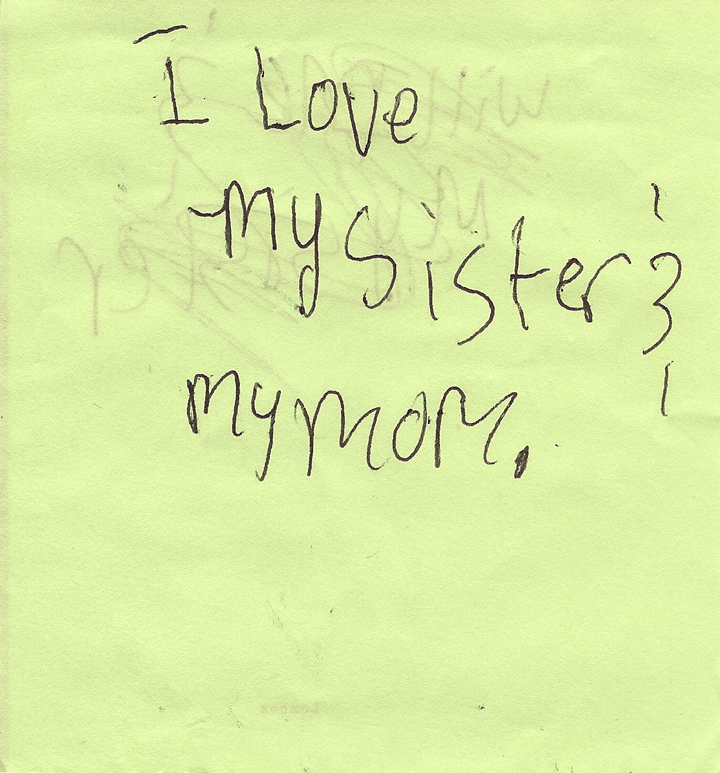 I Love
my sister &
my mom.